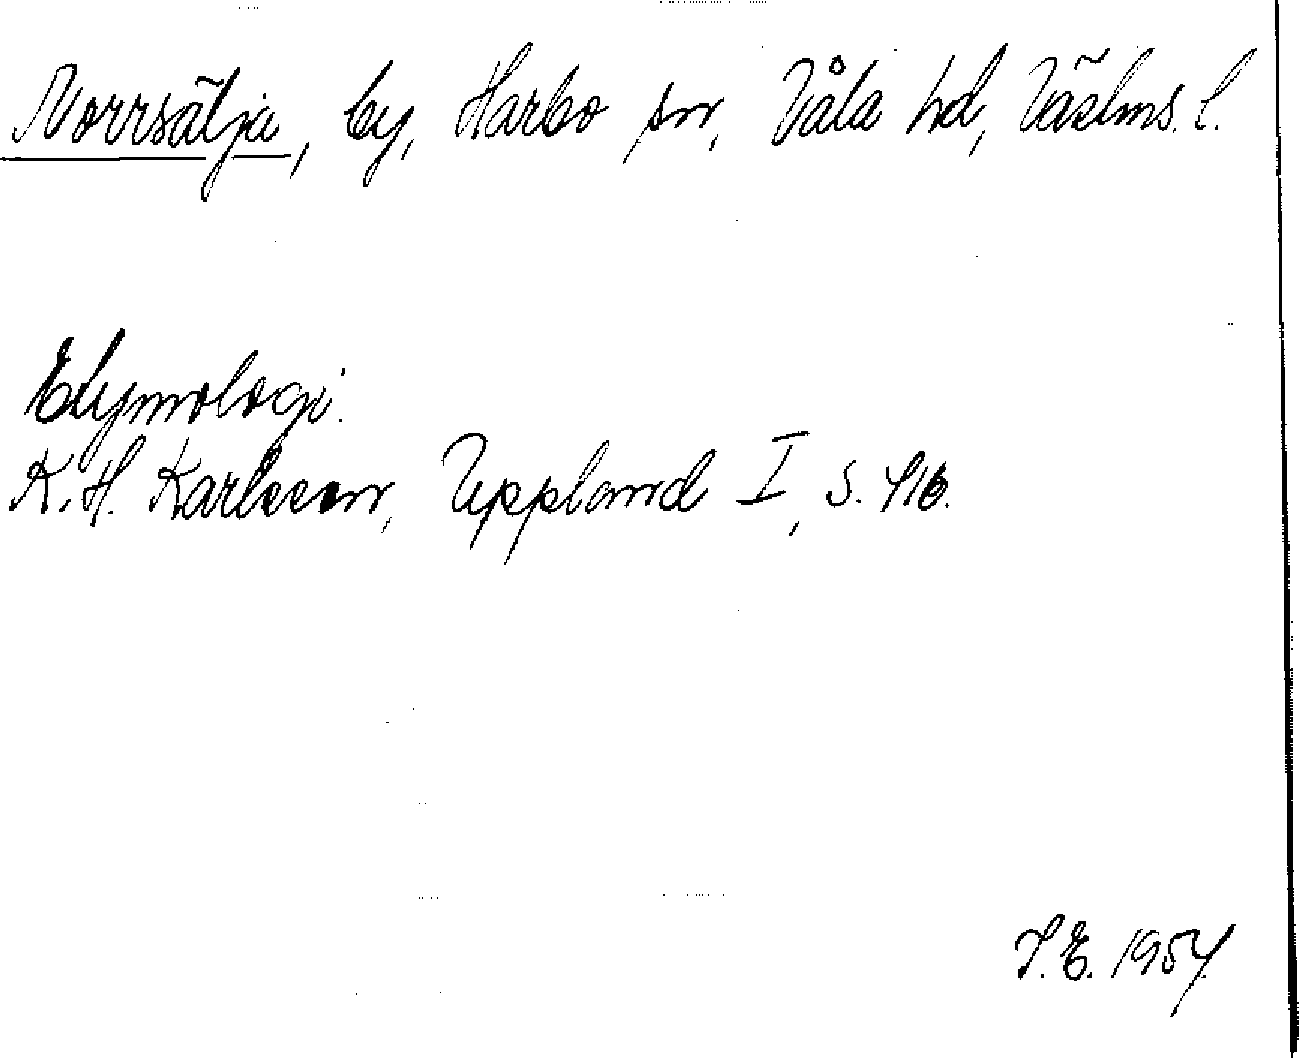 Norrsälja, by, Harbo sn, Våla hd, Västms. l.
Etymologi.
K.H. Karlsson, Uppland I, s. 716.
I.E. 1957